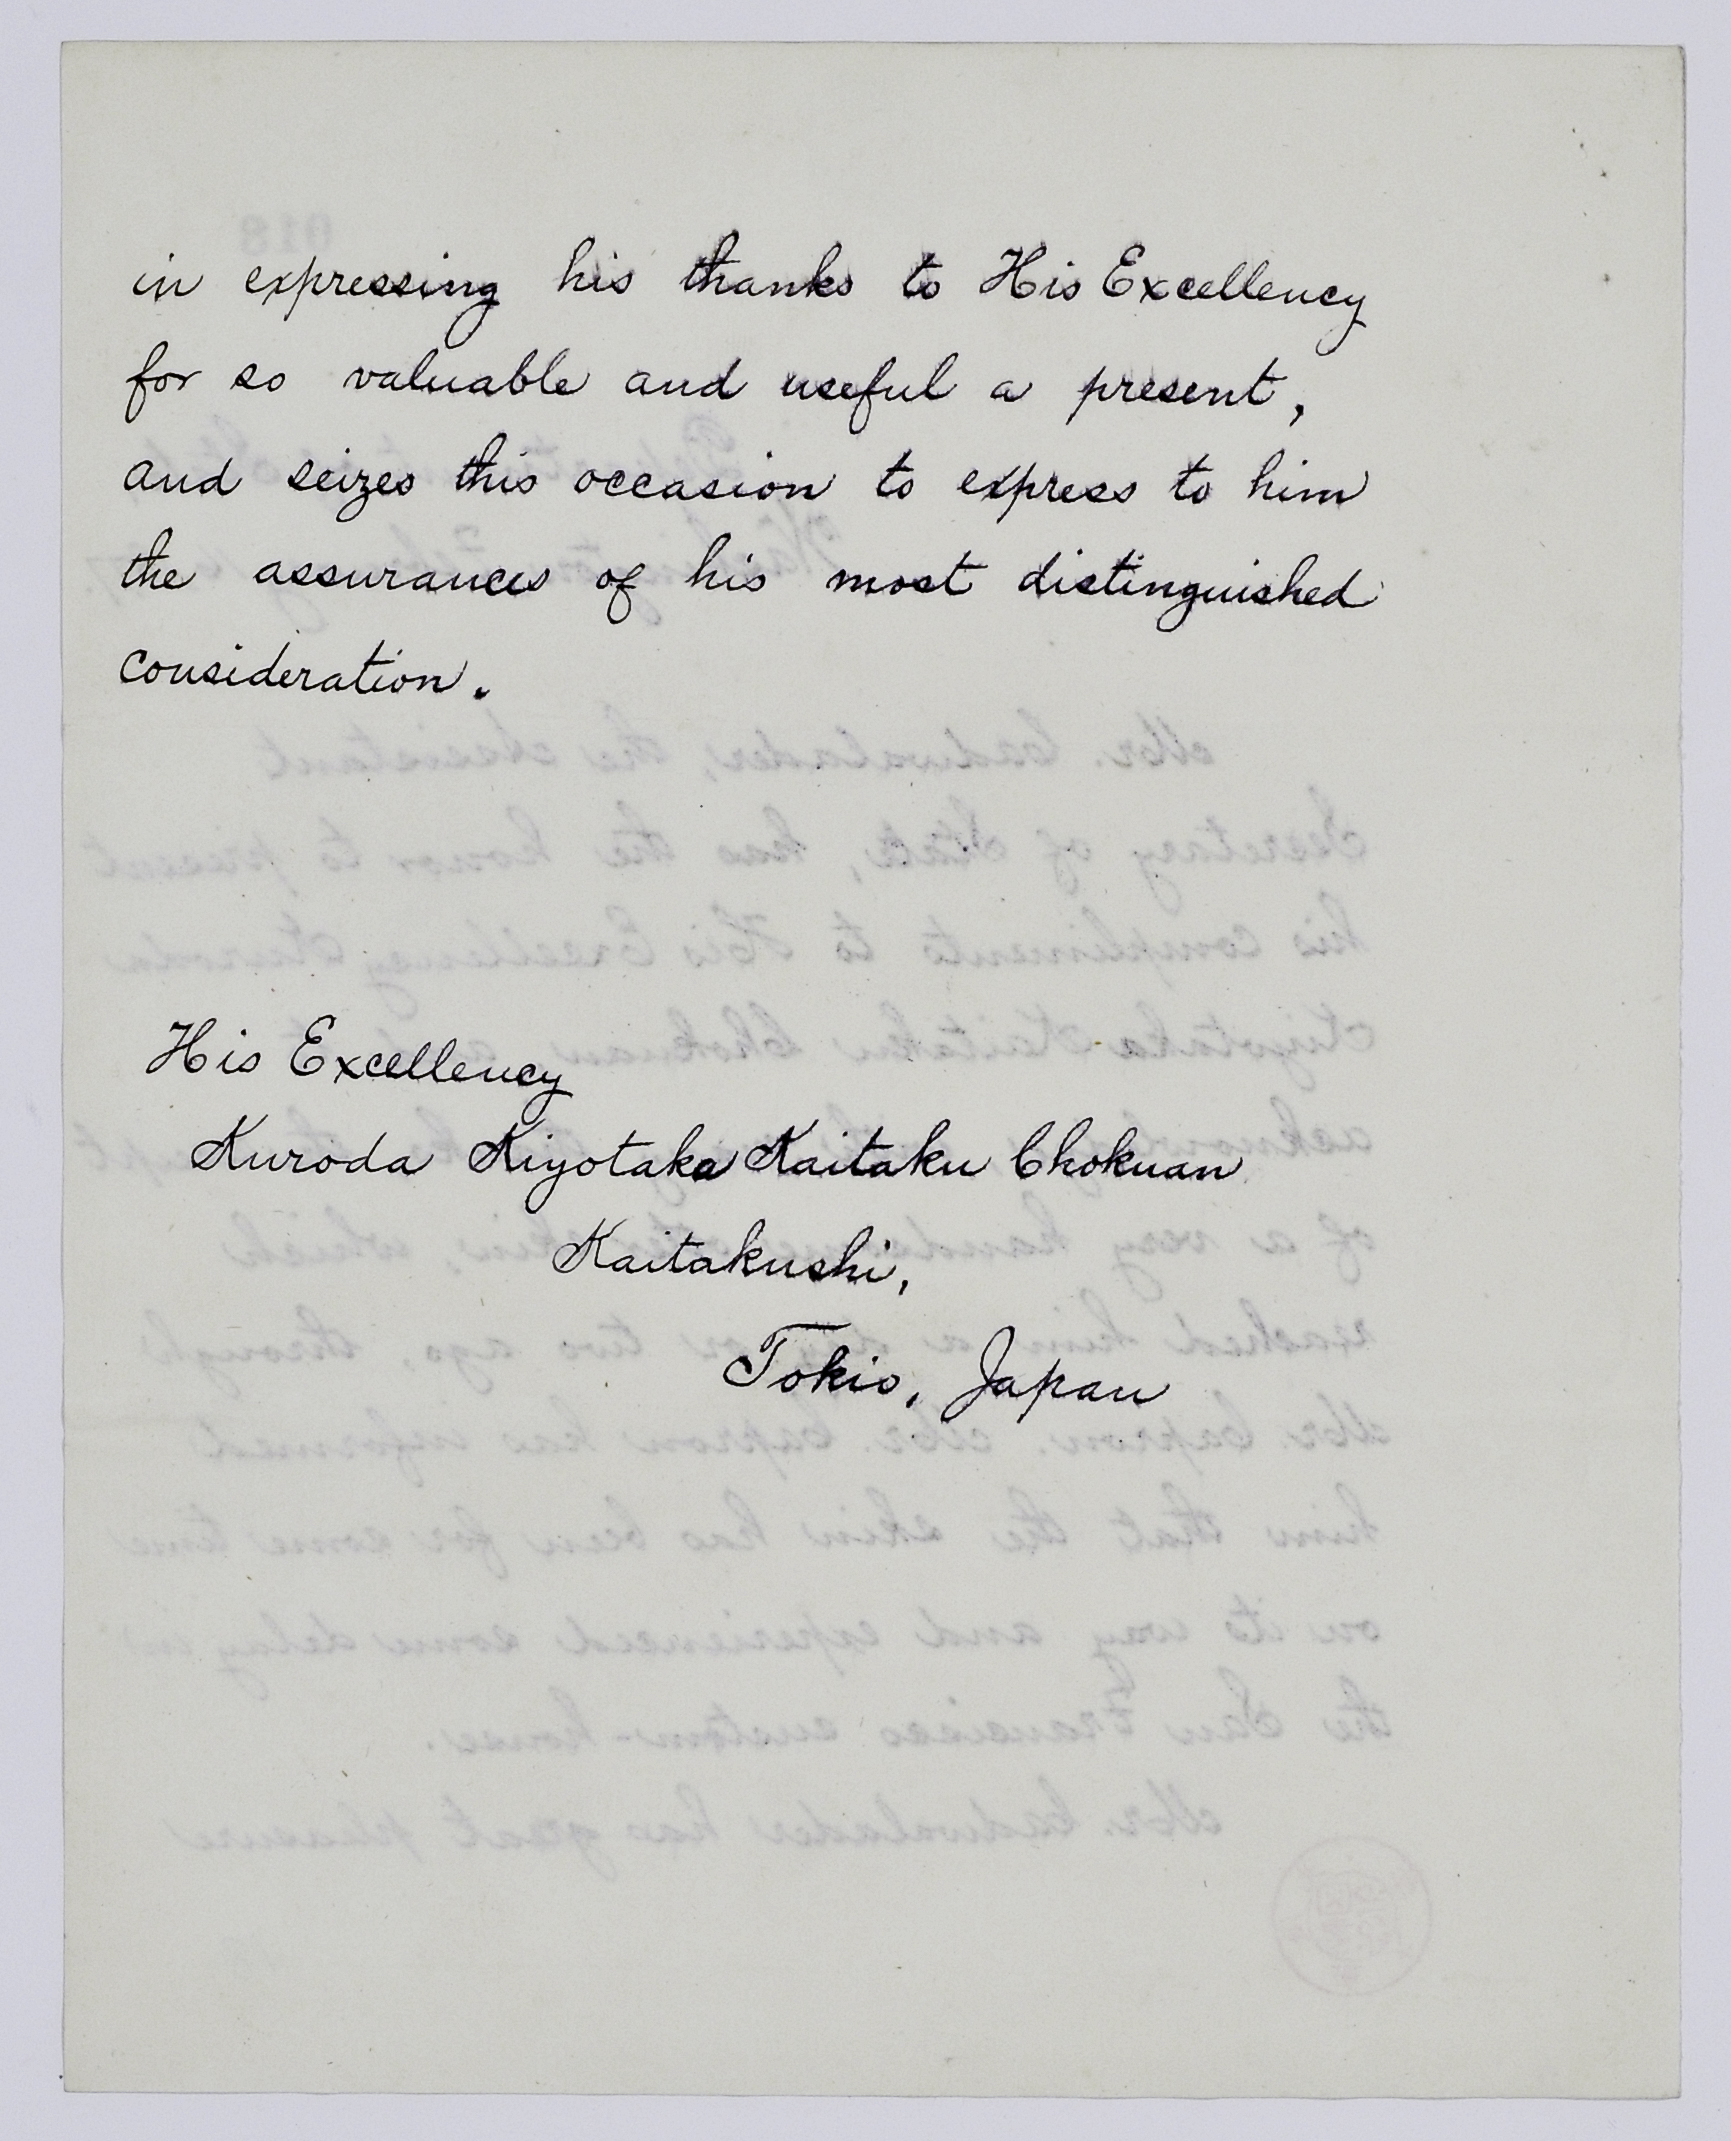 in expressing his thanks to His Excellency
for so valuable and useful a present,
and seizes this occasion to express to him
the assurances of his most distinguished
consideration.
His Excellency
Kuroda Kiyotaka Kaitaku Chokuan
Kaitakushi,
Tokio, Japan